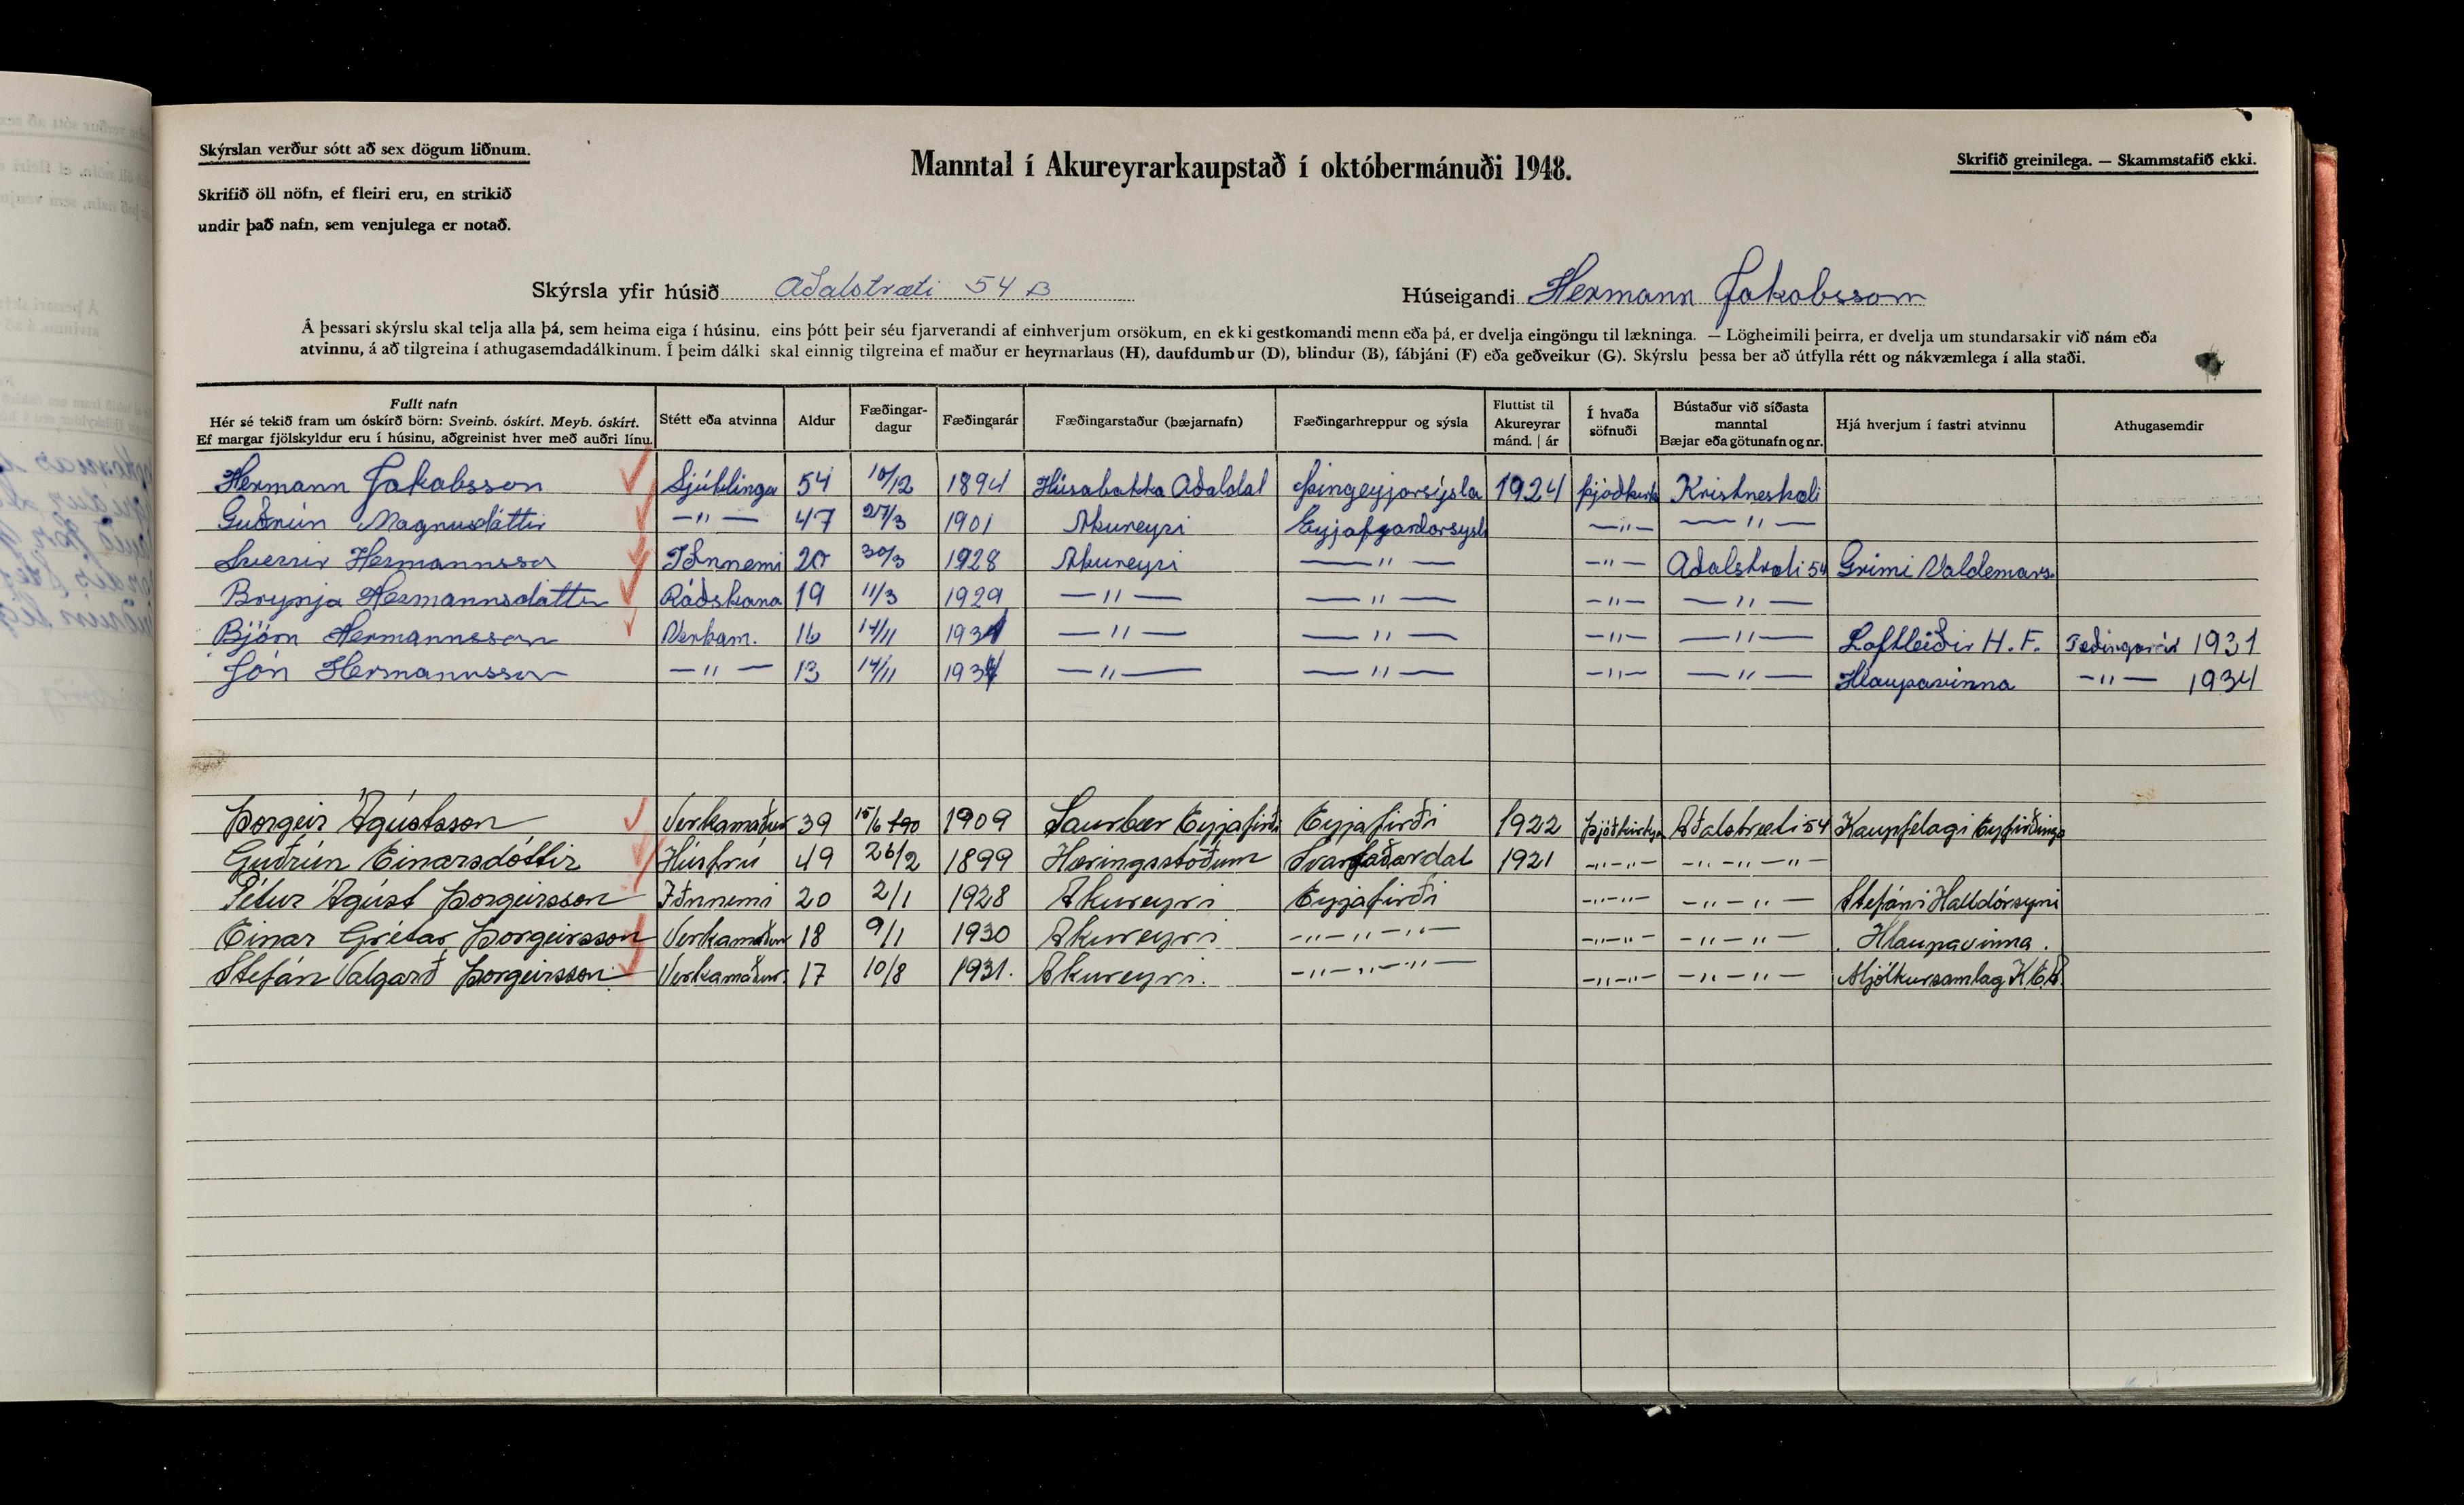 Skýrslan verður sótt að sex dögum liðnum.
Manntal í Akureyrarkaupstað í októbermánuði 1948.
Skrifið greinilega. — Skammstafið ekki.
Skrifið öll nöfn, ef fleiri eru, en strikið
undir það nafn, sem venjulega er notað.
Skýrsla yfir húsið Aðalstræti 54 B
Húseigandi Hermann Jakobsson
Á þessari skýrslu skal telja alla þá, sem heima eiga í húsinu, eins þótt þeir séu fjarverandi af einhverjum orsökum, en ekki gestkomandi menn eða þá, er dvelja eingöngu til lækninga. — Lögheimili þeirra, er dvelja um stundarsakir við nám eða
atvinnu, á að tilgreina í athugasemdadálkinum. Í þeim dálki skal einnig tilgreina ef maður er heyrnarlaus (H), daufdumbur (D), blindur (B), fábjáni (F) eða geðveikur (G). Skýrslu þessa ber að útfylla rétt og nákvæmlega í alla staði.
Fullt nafn
Hér sé tekið fram um óskírð börn: Sveinb. óskírt. Meyb. óskírt.
Ef margar fjölskyldur eru í húsinu, aðgreinist hver með auðri línu.
Stétt eða atvinna
Aldur
Fæðingar-
dagur
Fæðingarár
Fæðingarstaður (bæjarnafn)
Fæðingarhreppur og sýsla
Fluttist til
Akureyrar
mánd. | ár
Í hvaða
söfnuði
Bústaður við síðasta
manntal
Bæjar eða götunafn og nr.
Hjá hverjum í fastri atvinnu
Athugasemdir
Hermann Jakobsson Sjúklingur 54 10/12 1894 Húsabakka Aðaldal Þingeyjarsýsla 1924 Þjóðkirkj Kristneshæli
Guðrún Magnusdóttir —"— 47 27/3 1901 Akureyri Eyjafjardarsysl —"— —"—
Sverrir Hermannsson Iðnnemi 20 30/3 1928 Akureyri —"— —"— Aðalstræti 54 Grimi Valdemars.
Brynja Hermannsdóttir Ráðskona 19 11/3 1929 —"— —"— —"— —"—
Björn Hermannsson Verkam. 16 14/11 1931 —"— —"— —"— —"— Loftleiðir H.F. Fæðingarár 1931
Jón Hermannsson —"— 13 14/11 1934 —"— —"— —"— —"— Hlaupavinna —"— 1934
Þorgeir Ágústsson Verkamaður 39 15/6 1909 Saurbær Eyjafirði Eyjafirði 1922 Þjóðkirkja Aðalstræti 54 Kaupfelagi Eyfirðinga
Guðrún Einarsdóttir Húsfrú 49 26/2 1899 Hæringsstöðum Svarfaðardal 1921 —"—"— —"—"—"—
Pétur Ágúst Þorgeirsson Iðnnemi 20 2/1 1928 Akureyri Eyjafirði —"—"— —"—"— Stefáni Halldórsyni
Einar Grétar Þorgeirsson Verkamaður 18 9/1 1930 Akureyri —"—"—"— —"—"— —"—"— Hlaupavinna.
Stefán Valgarð Þorgeirsson Verkamaður. 17 10/8 1931. Akureyri. —"—"—"— —"—"— —"—"— Mjólkursamlag K.E.A.